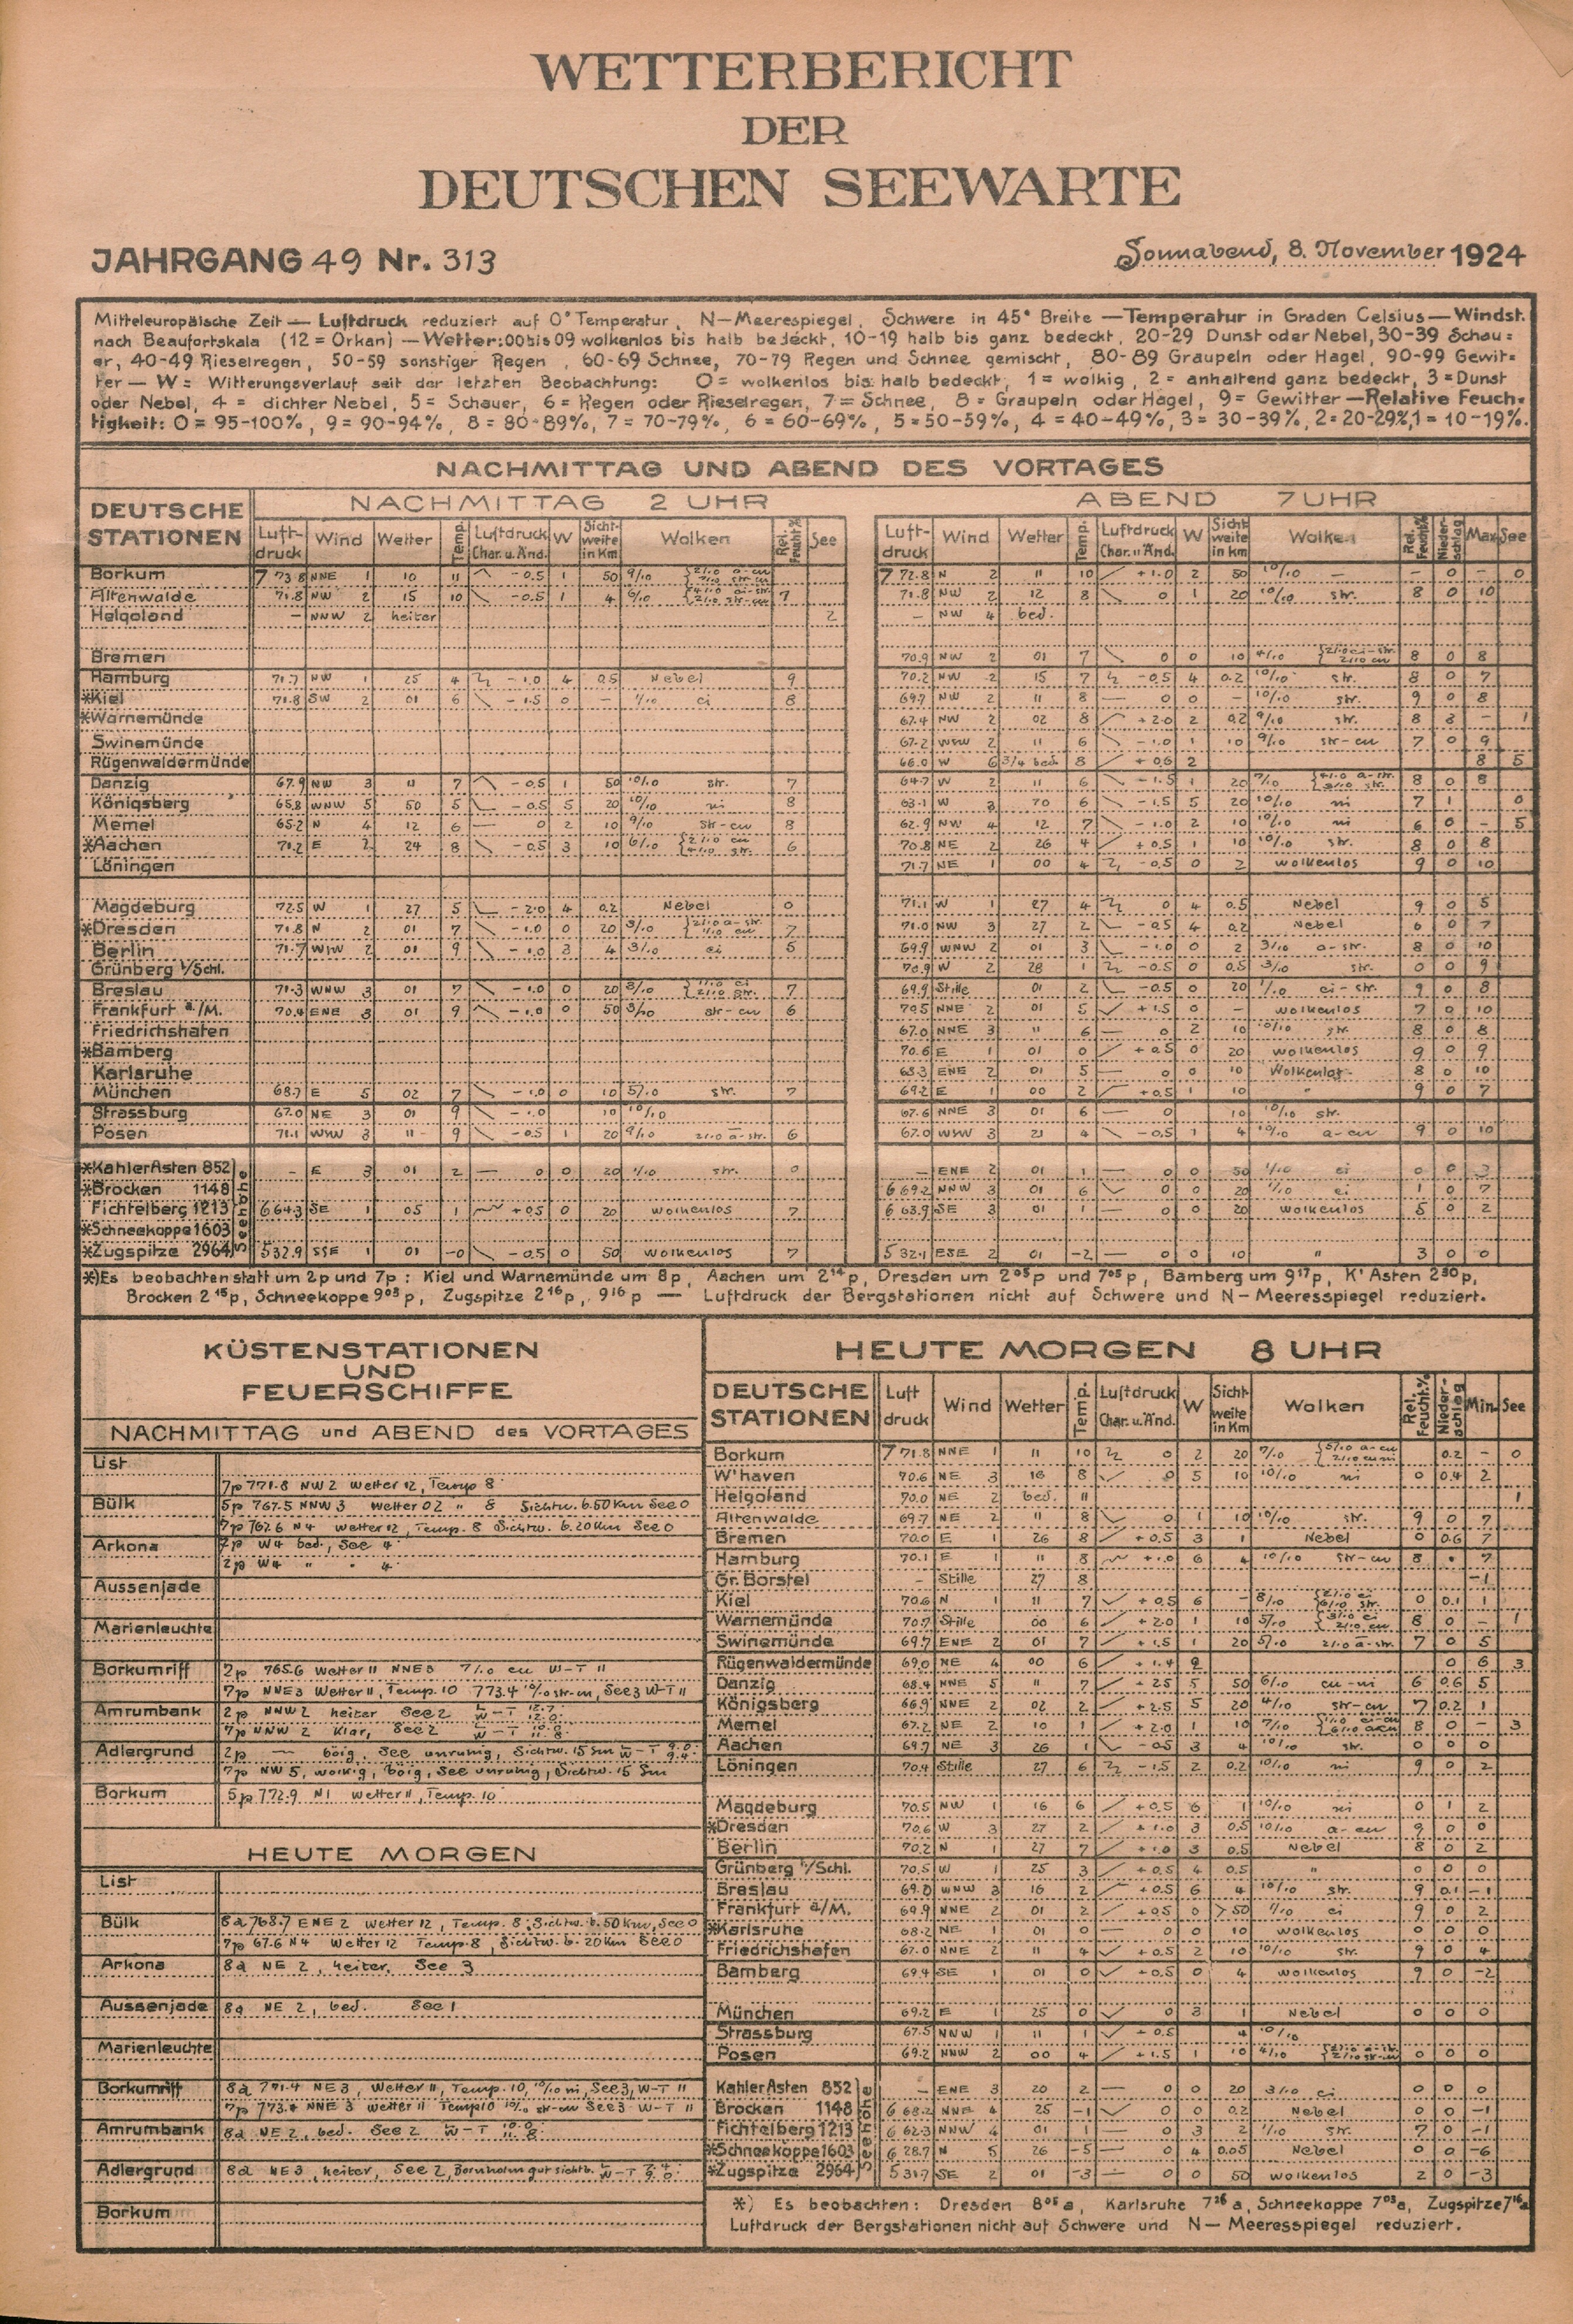 WETTERBERICHT
DER
DEUTSCHEN SEEWARTE
JAHRGANG 49 Nr. 313
Sonnabend, 8. November 1924
Mitteleuropäische Zeit — Luftdruck reduziert auf 0° Temperatur, N—Meerespiegel, Schwere in 45° Breite — Temperatur in Graden Celsius — Windst.
nach Beaufortskala (12 = Orkan) — Wetter: 00 bis 09 wolkenlos bis halb bedeckt, 10-19 halb bis ganz bedeckt, 20-29 Dunst oder Nebel, 30-39 Schau=
er, 40-49 Rieselregen, 50-59 sonstiger Regen, 60-69 Schnee, 70-79 Regen und Schnee gemischt, 80-89 Graupeln oder Hagel, 90-99 Gewit=
ter — W = Witterungsverlauf seit der letzten Beobachtung: 0 = wolkenlos bis halb bedeckt, 1 = wolkig, 2 = anhaltend ganz bedeckt, 3 = Dunst
oder Nebel, 4 = dichter Nebel, 5 = Schauer, 6 = Regen oder Rieselregen, 7 = Schnee, 8 = Graupeln oder Hagel, 9 = Gewitter — Relative Feuch=
tigkeit: 0 = 95-100%, 9 = 90-94%, 8 = 80-89%, 7 = 70-79%, 6 = 60-69%, 5 = 50-59%, 4 = 40-49%, 3 = 30-39%, 2 = 20-29%, 1 = 10-19%.
NACHMITTAG UND ABEND DES VORTAGES
DEUTSCHE STATIONEN
NACHMITTAG 2 UHR
ABEND 7 UHR
Luft-druck Wind Wetter Temp. Luftdruck Char. u. Änd. W Sicht-weite in Km Wolken Rel. Feucht.% See
Luft-druck Wind Wetter Temp. Luftdruck Char. u. Änd. W Sicht-weite in Km Wolken Rel. Feucht.% Nieder-schlag Max See
Borkum 7 73.8 NNE 1 10 11 -0.5 1 50 9/10 7 72.8 N 2 11 10 +1.0 2 50 10/10 — — 0 — 0
Altenwalde 71.8 NW 2 15 10 -0.5 1 4 6/10 7 71.8 NW 2 12 8 0 1 20 10/10 str. 8 0 10
Helgoland — NNW 2 heiter 2 — NW 4 bed.
Bremen 70.9 NW 2 01 7 0 0 10 4/10 8 0 8
Hamburg 71.7 NW 1 25 4 -1.0 4 0.5 Nebel 9 70.2 NW 2 15 7 -0.5 4 0.2 10/10 str. 8 0 7
*Kiel 71.8 SW 2 01 6 -1.5 0 — 1/10 ci 8 69.7 NW 2 11 8 — 0 0 — 10/10 str. 9 0 8
*Warnemünde 67.4 NW 2 02 8 +2.0 2 0.2 9/10 str. 8 — 1
Swinemünde 67.2 WSW 2 11 6 -1.0 1 10 9/10 str-cu 7 0 9
Rügenwaldermünde 66.0 W 6 3/4 bed. 8 +0.6 2 8 5
Danzig 67.9 NW 3 11 7 -0.5 1 50 10/10 str. 7 64.7 W 2 11 6 -1.5 1 20 7/10 8 0 8
Königsberg 65.8 WNW 5 50 5 -0.5 5 20 10/10 ni 8 63.1 W 3 70 6 -1.5 5 20 10/10 ni 7 1 0
Memel 65.2 N 4 12 6 — 0 2 10 9/10 str-cu 8 62.9 NW 4 12 7 -1.0 2 10 10/10 ni 6 0 — 5
*Aachen 71.2 E 2 24 8 -0.5 3 10 6/10 6 70.8 NE 2 26 4 +0.5 1 10 10/10 str. 8 0 8
Löningen 71.7 NE 1 00 4 -0.5 0 2 wolkenlos 9 0 10
Magdeburg 72.5 W 1 27 5 -2.0 4 0.2 Nebel 0 71.1 W 1 27 4 0 4 0.5 Nebel 9 0 5
*Dresden 71.8 N 2 01 7 -1.0 0 20 3/10 7 71.0 NW 3 27 2 -0.5 4 0.2 Nebel 0 7
Berlin 71.7 WSW 2 01 9 -1.0 3 4 3/10 ci 5 69.9 WNW 2 01 3 -1.0 0 2 3/10 a-str. 8 0 10
Grünberg i/Schl. 70.9 W 2 28 1 -0.5 0 0.5 3/10 str. 0 0 9
Breslau 71.3 WNW 3 01 7 -1.0 0 20 3/10 7 69.9 Stille 01 2 -0.5 0 20 1/10 ci-str. 9 0 8
Frankfurt a/M. 70.4 ENE 3 01 9 -1.0 0 50 3/10 str-cu 6 70.5 NNE 2 01 5 +1.5 0 — wolkenlos 7 0 10
Friedrichshafen 67.0 NNE 3 11 6 — 0 2 10 10/10 str. 8 0 8
*Bamberg 70.6 E 1 01 0 +0.5 0 20 wolkenlos 9 0 9
Karlsruhe ENE 2 01 5 — 0 0 10 8 0 10
München 68.7 E 5 02 7 -1.0 0 10 5/10 str. 7 69.2 E 1 00 2 +0.5 1 10 " 9 0 7
Strassburg 67.0 NE 3 01 9 -1.0 10 10/10 67.6 NNE 3 01 6 — 0 10 10/10 str.
Posen 71.1 WSW 3 11 9 -0.5 1 20 9/10 6 67.0 WSW 3 21 4 -0.5 1 4 10/10 a-cu 9 0 10
Seehöhe
*Kahler Asten 852 — E 3 01 2 — 0 0 20 1/10 str. 0 — ENE 2 01 1 — 0 0 50 1/10 ci 0 0
*Brocken 1148 6 69.2 NNW 3 01 6 0 0 20 1/10 ci 1 0 7
Fichtelberg 1213 6 64.3 SE 1 05 1 +0.5 0 20 wolkenlos 7 6 63.9 SE 3 01 1 — 0 0 20 wolkenlos 5 0 2
*Schneekoppe 1603
*Zugspitze 2964 5 32.9 SSE 1 01 -0 -0.5 0 50 wolkenlos 7 5 32.1 ESE 2 01 -2 — 0 0 10 " 3 0 0
*) Es beobachten statt um 2p und 7p : Kiel und Warnemünde um 8p, Aachen um 2¹⁴p, Dresden um 2⁰⁵p und 7⁰⁵p, Bamberg um 9¹⁷p, K' Asten 2³⁰p,
Brocken 2¹⁵p, Schneekoppe 9⁰³p, Zugspitze 2¹⁶p, 9¹⁶p — Luftdruck der Bergstationen nicht auf Schwere und N—Meeresspiegel reduziert.
KÜSTENSTATIONEN
UND
FEUERSCHIFFE
NACHMITTAG und ABEND des VORTAGES
List
7p 771.8 NW 2 Wetter 12, Temp 8
Bülk 5p 767.5 NNW 3 Wetter 02 " 8 Sichtw. b. 50 Km See 0
7p 767.6 N4 Wetter 12, Temp. 8 Sichtw. b. 20 Km See 0
Arkona 7p W4 bed., See 4
2p W4 " " 4
Aussenjade
Marienleuchte
Borkumriff 2p 765.6 Wetter 11 NNE 3 7/10 cu W-T 11
7p NNE 3 Wetter 11, Temp. 10 773.4 10/10 str-cu, See 3 W-T 11
Amrumbank 2p NNW 2 heiter See 2 W-T
7p NNW 2 klar, See 2 W-T
Adlergrund 2p — böig, See unruhig, Sichtw. 15 Sm W-T
7p NW 5, wolkig, böig, See unruhig, Sichtw. 15 Sm
Borkum 5p 772.9 N1 Wetter 11, Temp. 10
HEUTE MORGEN
List
Bülk 8a 768.7 ENE 2 Wetter 12, Temp. 8, Sichtw. b. 50 Km, See 0
7p 67.6 N4 Wetter 12 Temp. 8, Sichtw. b. 20 Km See 0
Arkona 8a NE 2, heiter, See 3
Aussenjade 8a NE 2, bed. See 1
Marienleuchte
Borkumriff 8a 771.4 NE 3, Wetter 11, Temp. 10, 10/10 ni, See 3, W-T 11
7p 773.4 NNE 3 Wetter 11 Temp 10 10/10 str-cu See 3 W-T 11
Amrumbank 8a NE 2, bed. See 2 W-T
Adlergrund 8a NE 3, heiter, See 2, Bornholm gut sichtb. W-T
Borkum
HEUTE MORGEN 8 UHR
DEUTSCHE STATIONEN Luft druck Wind Wetter Temp. Luftdruck Char. u. Änd. W Sicht-weite in Km Wolken Rel. Feucht.% Nieder-schlag Min. See
Borkum 7 71.8 NNE 1 11 10 0 2 20 7/10 0.2 — 0
W'haven 70.6 NE 3 16 8 0 5 10 10/10 ni 0 0.4 2
Helgoland 70.0 NE 2 bed. 11 1
Altenwalde 69.7 NE 2 11 8 0 1 10 10/10 str. 9 0 7
Bremen 70.0 E 1 26 8 +0.5 3 1 Nebel 0 0.6 7
Hamburg 70.1 E 1 11 8 +1.0 6 4 10/10 str-cu 8 • 7
Gr. Borstel — Stille 27 8 -1
Kiel 70.6 N 1 11 7 +0.5 6 — 8/10 0 0.1 1
Warnemünde 70.7 Stille 00 6 +2.0 1 10 5/10 8 0 — 1
Swinemünde 69.7 ENE 2 01 7 +1.5 1 20 5/10 2/10 a-str. 7 0 5
Rügenwaldermünde 69.0 NE 4 00 6 +1.4 2 0 6 3
Danzig 68.4 NNE 5 11 7 +2.5 5 50 6/10 cu-ni 6 0.6 5
Königsberg 66.9 NNE 2 02 2 +2.5 5 20 4/10 str-cu 7 0.2 1
Memel 67.2 NE 2 10 1 +2.0 1 10 7/10 8 0 — 3
Aachen 69.7 NE 3 26 1 -0.5 3 4 10/10 str. 0 0 0
Löningen 70.4 Stille 27 6 -1.5 2 0.2 10/10 ni 9 0 2
Magdeburg 70.5 NW 1 16 6 +0.5 6 1 10/10 ni 0 1 2
*Dresden 70.6 W 3 27 2 +1.0 3 0.5 10/10 a-cu 9 0 0
Berlin 70.2 N 1 27 7 +1.0 3 0.5 Nebel 8 0 2
Grünberg i/Schl. 70.5 W 1 25 3 +0.5 4 0.5 " 0 0 0
Breslau 69.0 WNW 3 16 2 +0.5 6 4 10/10 str. 9 0.1 -1
Frankfurt a/M. 69.9 NNE 2 01 2 +0.5 0 >50 1/10 ci 9 0 2
*Karlsruhe 68.2 NE 1 01 0 0 0 10 wolkenlos 0 0 0
Friedrichshafen 67.0 NNE 2 11 4 +0.5 2 10 10/10 str. 9 0 4
Bamberg 69.4 SE 1 01 0 +0.5 0 4 wolkenlos 9 0 -2
München 69.2 E 1 25 0 0 3 1 Nebel 0 0 0
Strassburg 67.5 NNW 1 11 1 +0.5 4 10/10
Posen 69.2 NNW 2 00 4 +1.5 1 10 4/10 0 0 0
Seehöhe
Kahler Asten 852 — ENE 3 20 2 — 0 0 20 3/10 ci 0 0 0
Brocken 1148 6 68.2 NNE 4 25 -1 0 0 0.2 Nebel 0 0 -1
Fichtelberg 1213 6 62.3 NNW 4 01 1 — 0 3 2 1/10 str. 7 0 -1
*Schneekoppe 1603 6 28.7 N 5 26 -5 — 0 4 0.05 Nebel 0 0 -6
*Zugspitze 2964 5 31.7 SE 2 01 -3 — 0 0 50 wolkenlos 2 0 -3
*) Es beobachten: Dresden 8⁰⁵a, Karlsruhe 7²⁶a, Schneekoppe 7⁰³a, Zugspitze 7¹⁶a
Luftdruck der Bergstationen nicht auf Schwere und N—Meeresspiegel reduziert.